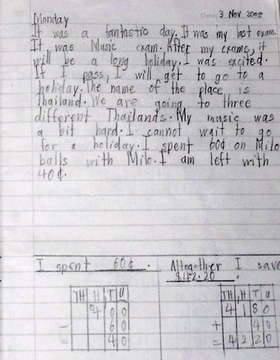 3 Nov
Monday
It was a fantastic day. It was my last exam.
It was Music exam. After my exams, it
will be a long holiday. I was excited.
If I pass, I will get to go to a
holiday. The name of the place is
Thailand. We are going to three
different Thailands. My music was
a bit hard. I cannot wait to go
for a holiday. I spent 60¢ on Milo
balls with Milo. I am left with
40¢.
I spent 60¢. Altogether I save
$152.20
TH H T U TH H T U
4 0 0 4 1 8 0
- 6 0 + 4 0
4 0 = 4 2 2 0